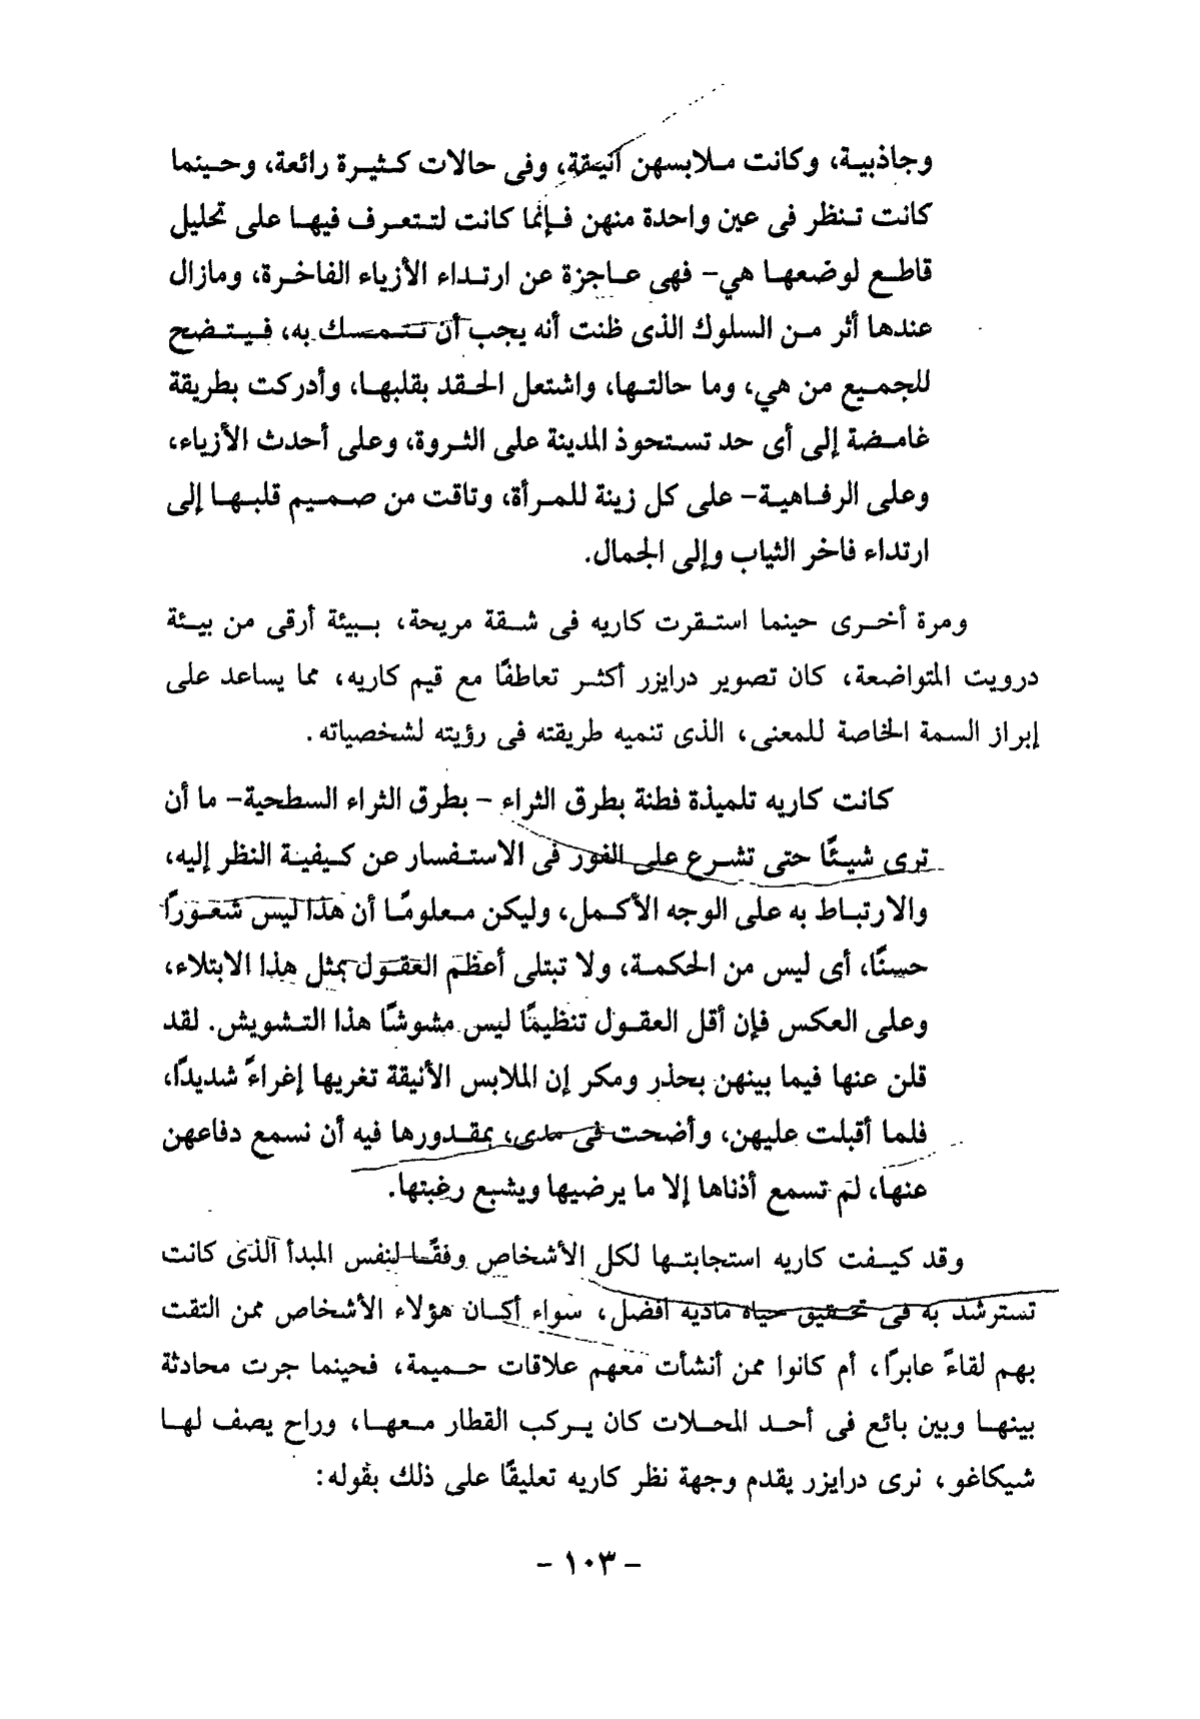 وجاذبية، وكانت ملابسهن أنيقة، وفى حالات كثيرة رائعة، وحينما
كانت تنظر فى عين واحدة منهن فإنما كانت لتتعرف فيها على تحليل
قاطع لوضعها هي- فهى عاجزة عن ارتداء الأزياء الفاخرة، ومازال
عندها أثر من السلوك الذى ظنت أنه يجب أن تتمسك به، فيتضح
للجميع من هي، وما حالتها، واشتعل الحقد بقلبها، وأدركت بطريقة
غامضة إلى أى حد تستحوذ المدينة على الثروة، وعلى أحدث الأزياء،
وعلى الرفاهية- على كل زينة للمرأة، وتاقت من صميم قلبها إلى
ارتداء فاخر الثياب وإلى الجمال.
ومرة أخرى حينما استقرت كاريه فى شقة مريحة، ببيئة أرقى من بيئة
درويت المتواضعة، كان تصوير درايزر أكثر تعاطفًا مع قيم كاريه، مما يساعد على
إبراز السمة الخاصة للمعنى، الذى تنميه طريقته فى رؤيته لشخصياته.
كانت كاريه تلميذة فطنة بطرق الثراء - بطرق الثراء السطحية- ما أن
ترى شيئًا حتى تشرع على الفور فى الاستفسار عن كيفية النظر إليه،
والارتباط به على الوجه الأكمل، وليكن معلومًا أن هذا ليس شعورًا
حسنًا، أى ليس من الحكمة، ولا تبتلى أعظم العقول بمثل هذا الابتلاء،
وعلى العكس فإن أقل العقول تنظيمًا ليس مشوشًا هذا التشويش. لقد
قلن عنها فيما بينهن بحذر ومكر إن الملابس الأنيقة تغريها إغراءً شديدًا،
فلما أقبلت عليهن، وأضحت فى مدى، بمقدورها فيه أن نسمع دفاعهن
عنها، لم تسمع أذناها إلا ما يرضيها ويشبع رغبتها.
وقد كيفت كاريه استجابتها لكل الأشخاص وفقًا لنفس المبدأ الذى كانت
تسترشد به فى تحقيق حياة مادية أفضل، سواء أكان هؤلاء الأشخاص ممن التقت
بهم لقاءً عابرًا، أم كانوا ممن أنشأت معهم علاقات حميمة، فحينما جرت محادثة
بينها وبين بائع فى أحد المحلات كان يركب القطار معها، وراح يصف لها
شيكاغو، نرى درايزر يقدم وجهة نظر كاريه تعليقًا على ذلك بقوله:
- ١٠٣ -